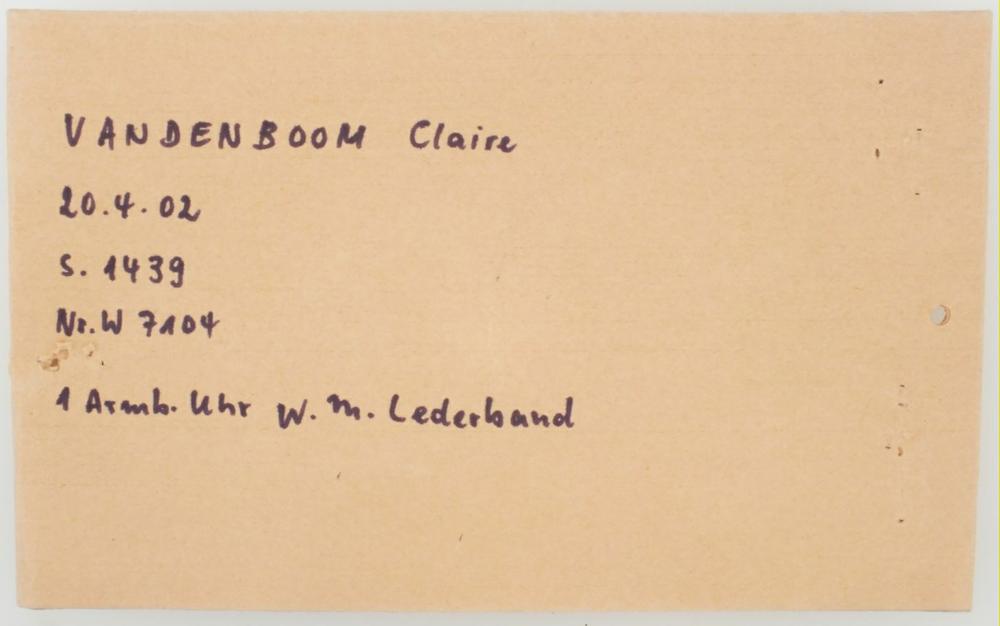 VANDENBOOM Claire
20.4.02
S. 1439
Nr. W 7104
1 Armb. Uhr W. m. Lederband